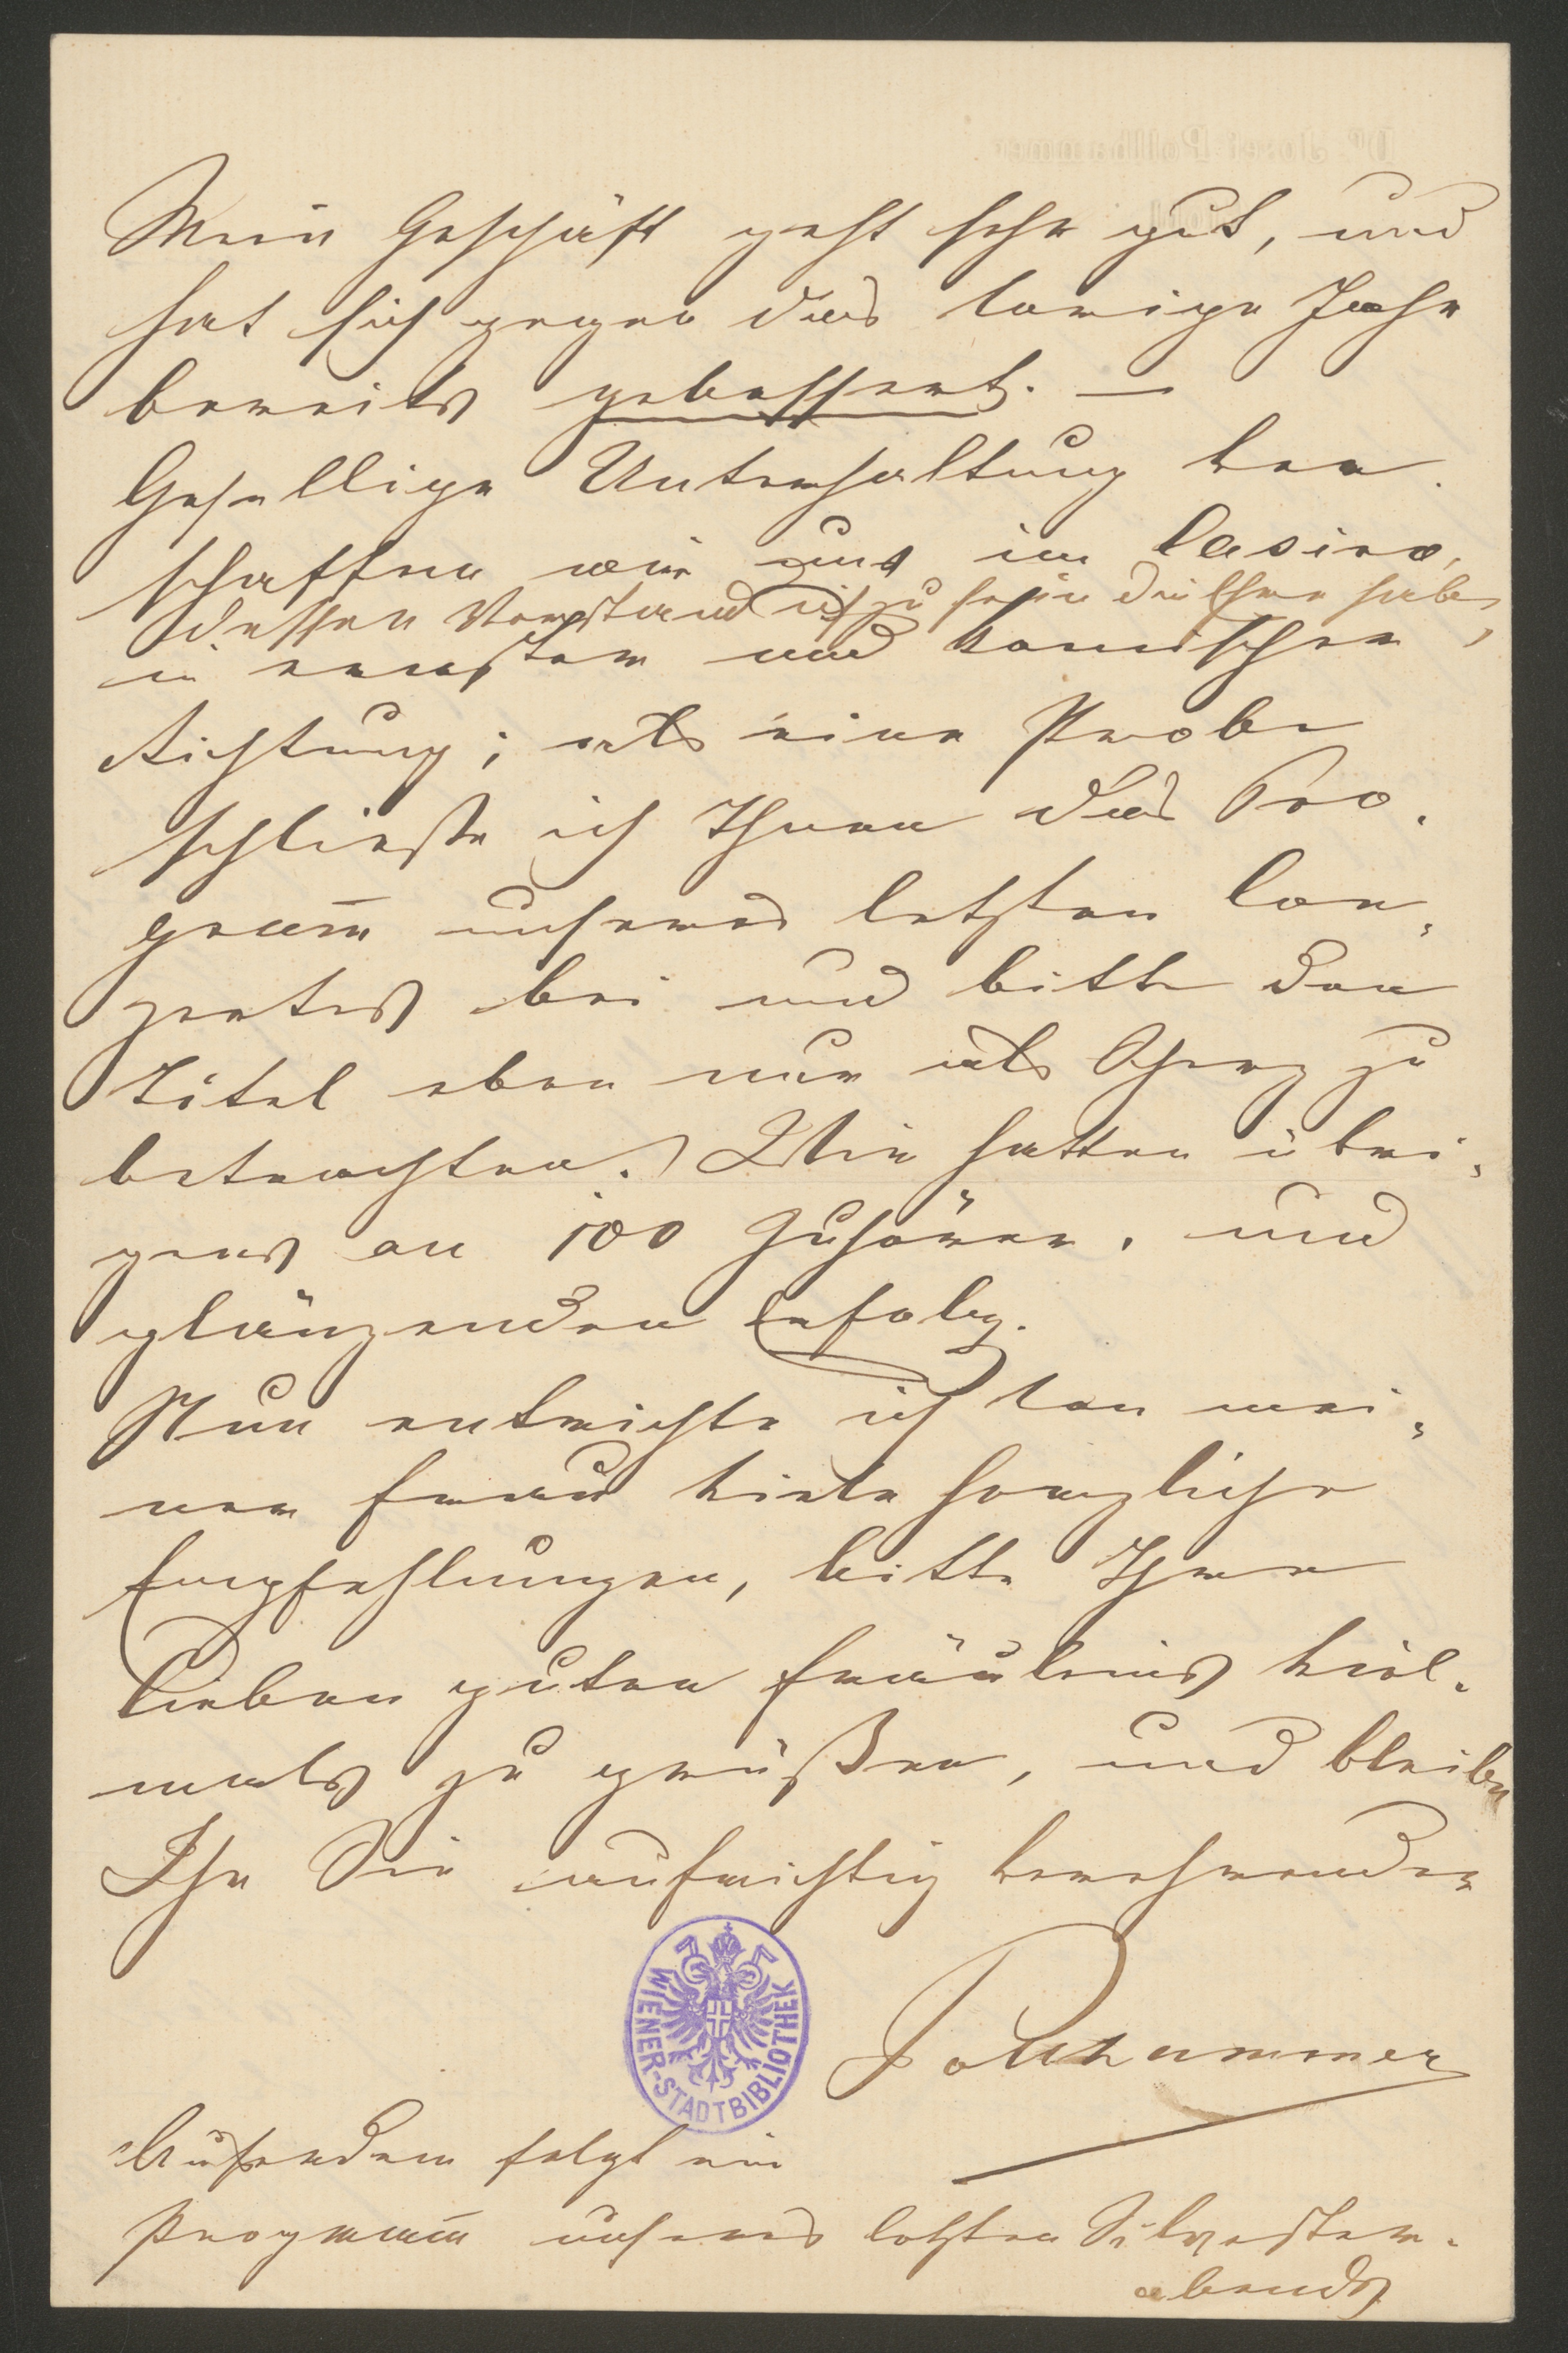 Mein Geschäft geht sehr gut, und
hat sich gegen das vorige Jahr
bereits gebessert. —
Gesellige Unterhaltung ver-
schaffen wir uns im Casino,
dessen Vorstand ich zu sein die Ehre habe,
in ernster und komischer
Richtung; als eine Probe
schließe ich Ihnen das Pro-
gram̅ unseres letzten Con-
zertes bei und bitte den
Titel eben nur als Scherz zu
betrachten. Wir hatten übri-
gens an 100 Zuhörer. und
glänzenden Erfolg.
Nun entrichte ich von mei-
ner Frau viele herzliche
Empfehlungen, bitte Ihre
lieben guten Fräuleins viel-
mals zu grüßen, und bleibe
Ihr Sie aufrichtig verehrender
Pollhammer
Außerdem folgt ein
Program̅ unseres letzten Silvester-
abends
WIENER-STADTBIBLIOTHEK
Dr. Josef Pollhammer